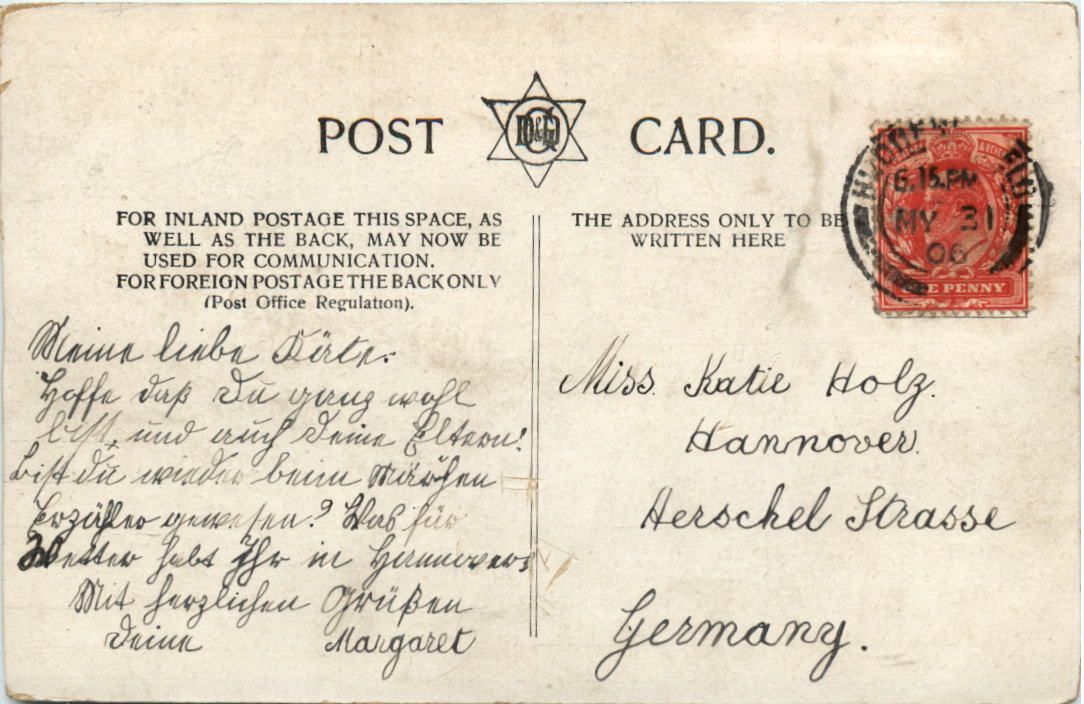 POST CARD.
D&G
HUDDERSFIELD
6.15.PM
MY 31
06
ONE PENNY
FOR INLAND POSTAGE THIS SPACE, AS
WELL AS THE BACK, MAY NOW BE
USED FOR COMMUNICATION.
FOR FOREIGN POSTAGE THE BACK ONLY
(Post Office Regulation).
THE ADDRESS ONLY TO BE
WRITTEN HERE
Meine liebe Käte.
Hoffe daß Du ganz wohl
bist, und auch Deine Eltern!
Bist du wieder beim Märchen
Erzähler gewesen? Was für
Wetter habt Ihr in Hannover?
Mit herzlichen Grüßen
Deine Margaret
Miss. Katie Holz.
Hannover.
Herschel Strasse
Germany.